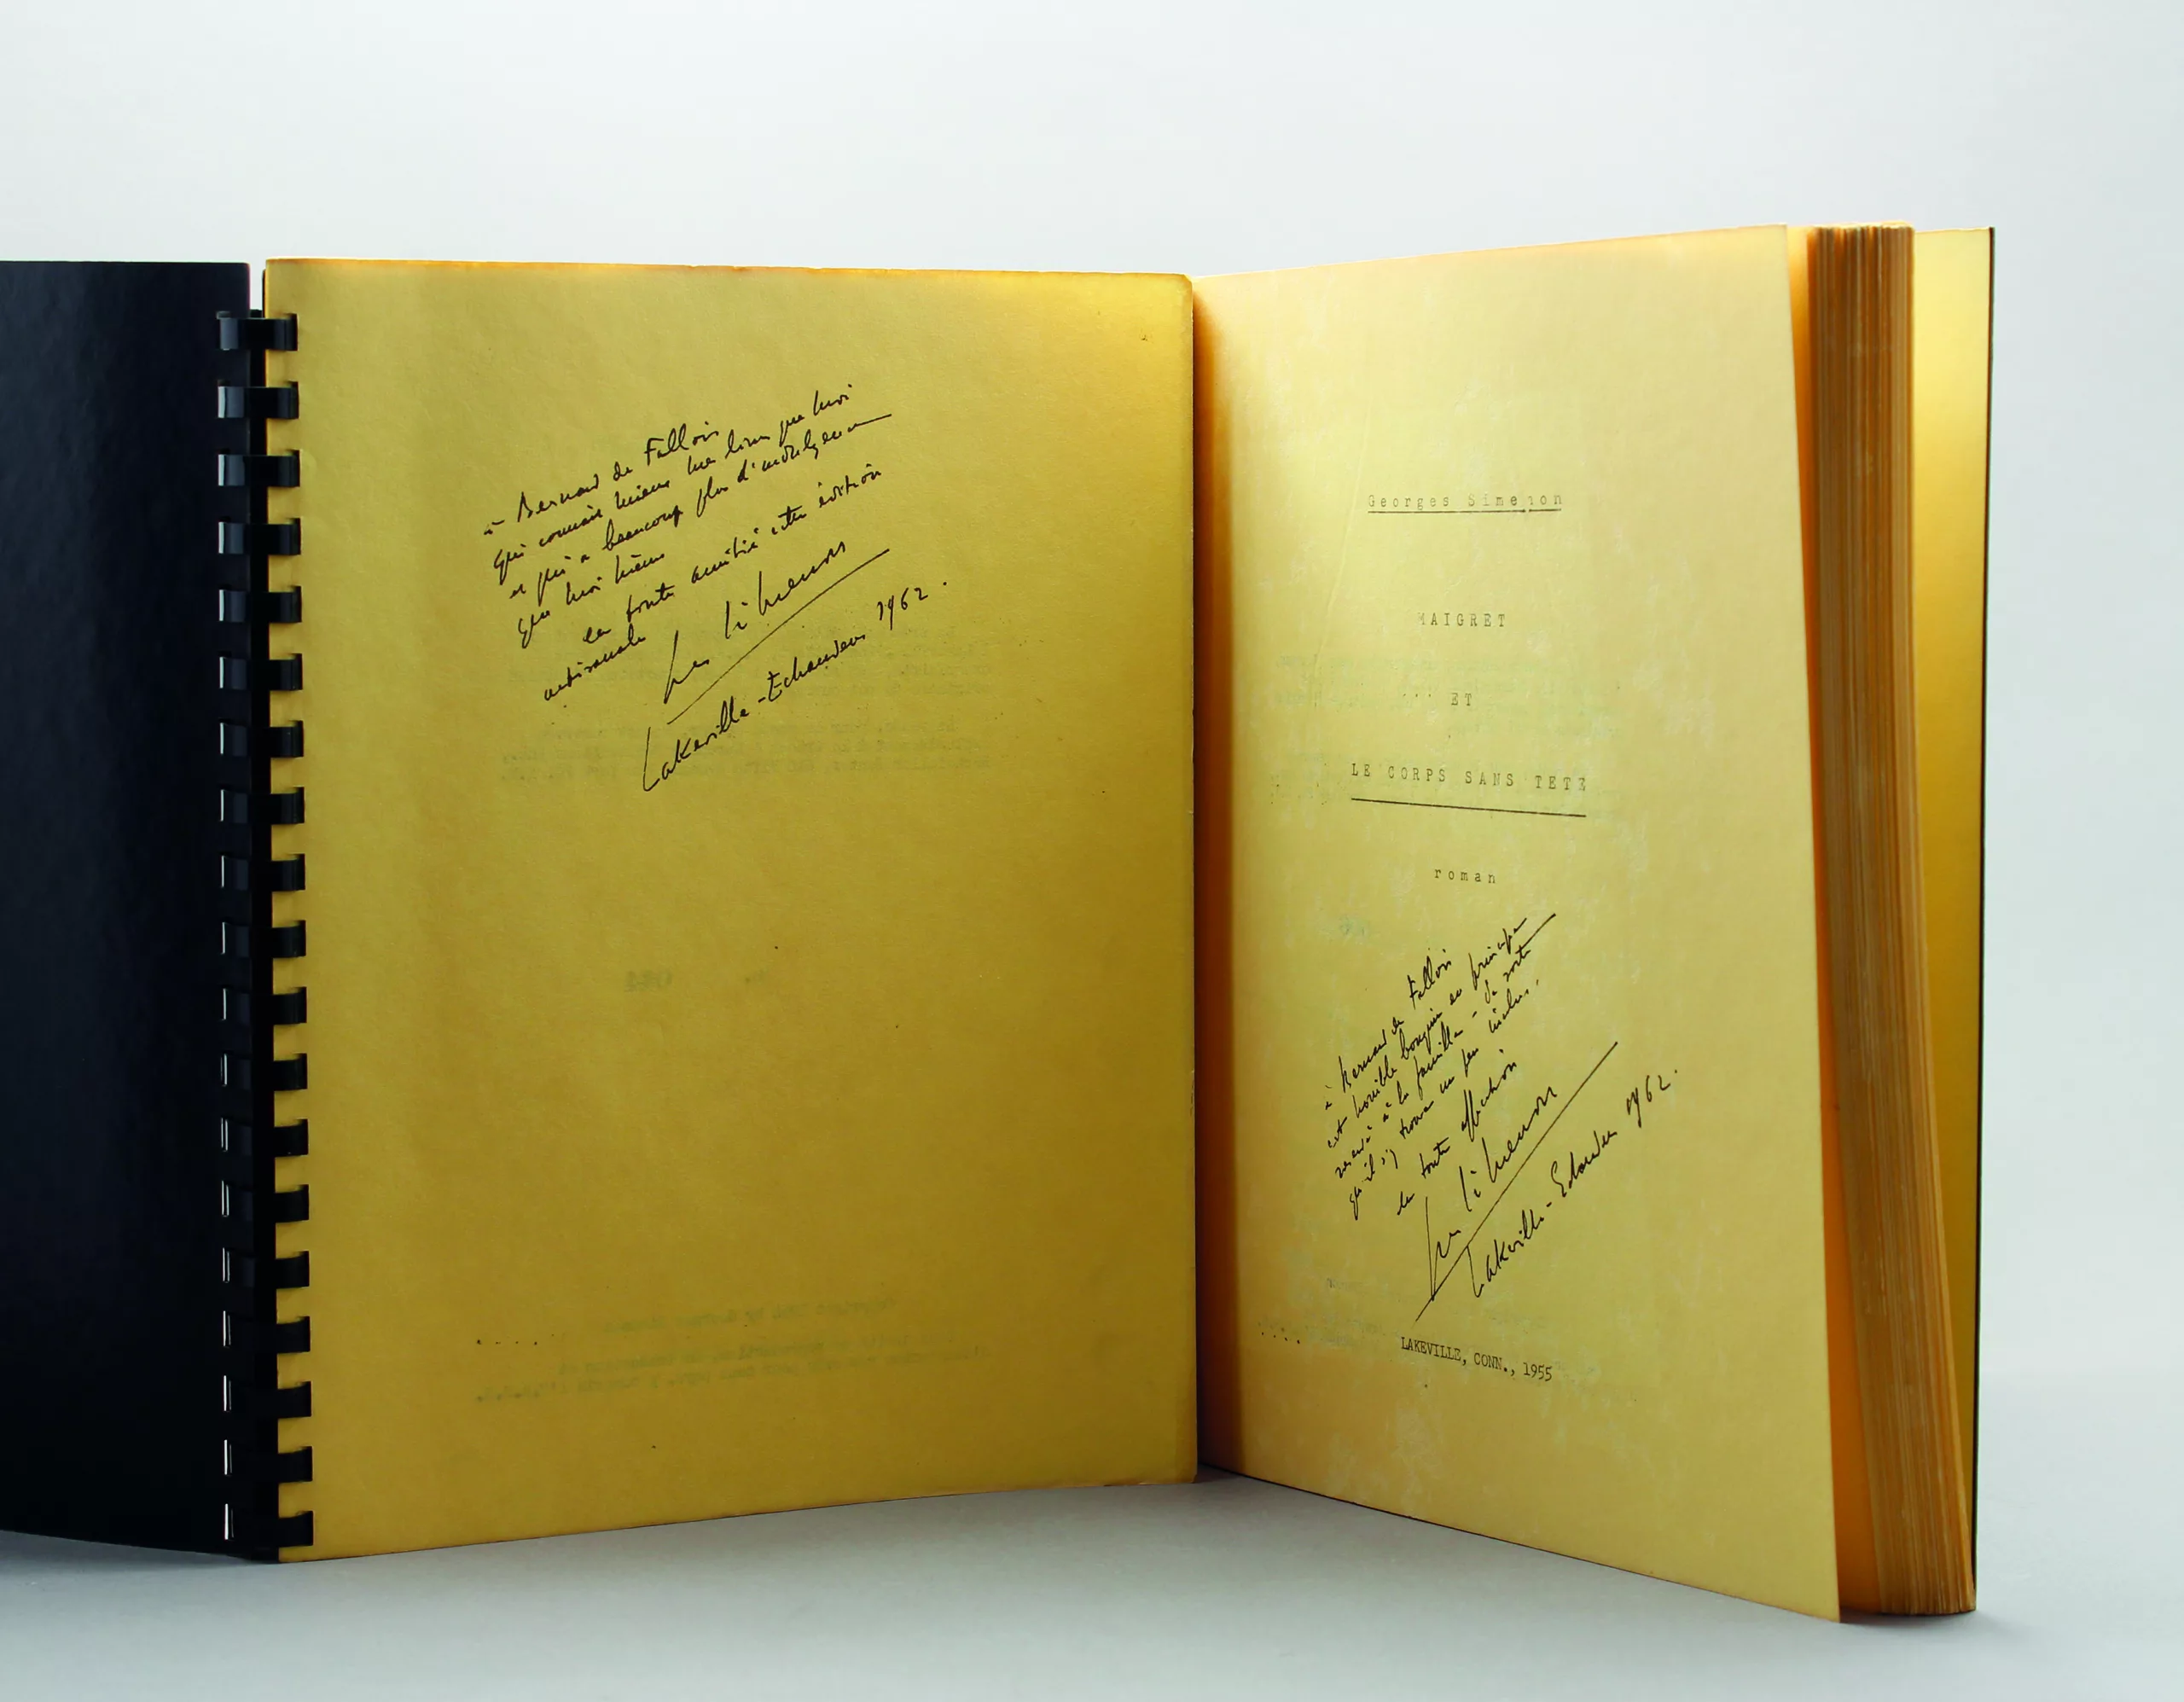 à Bernard de Fallois
qui connait mieux mes livres que moi
et qui a beaucoup plus d'indulgence
que moi même
en toute amitié cette édition
artisanale
Simenon
Lakeville-Echandens 1962.
Georges Simenon
MAIGRET
ET
LE CORPS SANS TETE
roman
à Bernard de Fallois
cet horrible bouquin en principe
reservé à la famille - de sorte
qu'il s'y trouve un peu inclus.
en toute affection
Simenon
Lakeville-Echandens 1962.
LAKEVILLE, CONN., 1955